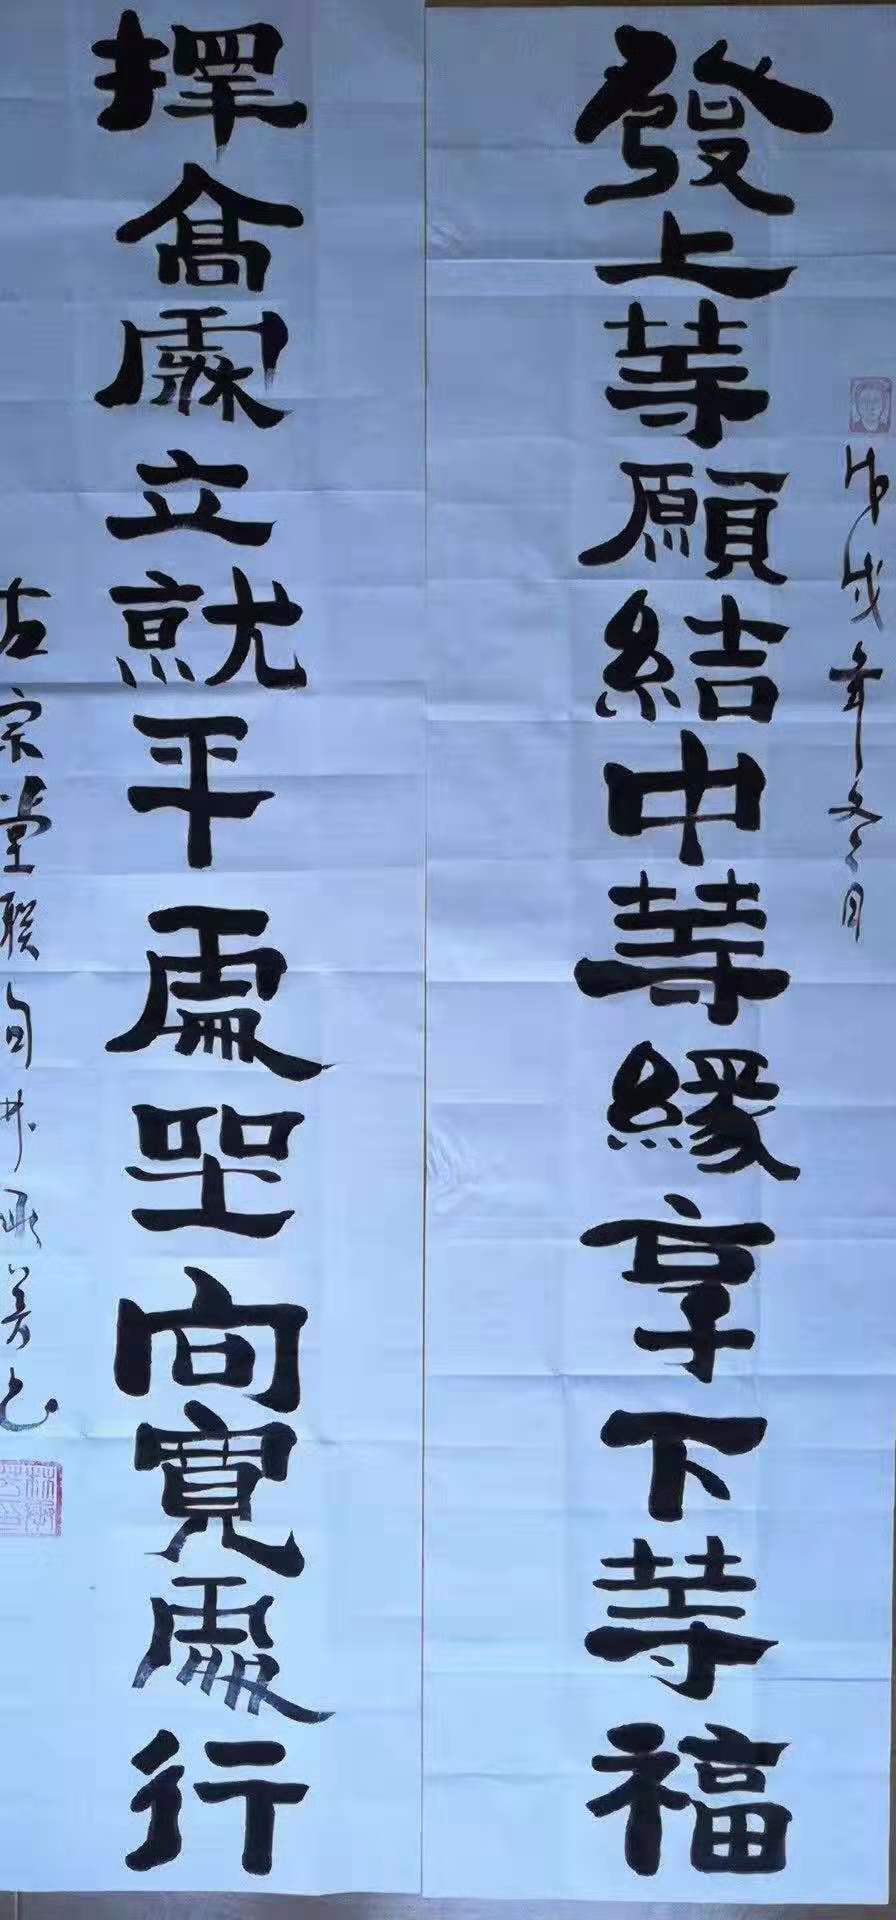 戊戌年冬月
發上等願結中等緣享下等福
擇高處立就平處坐向寬處行
左宗堂聯句林